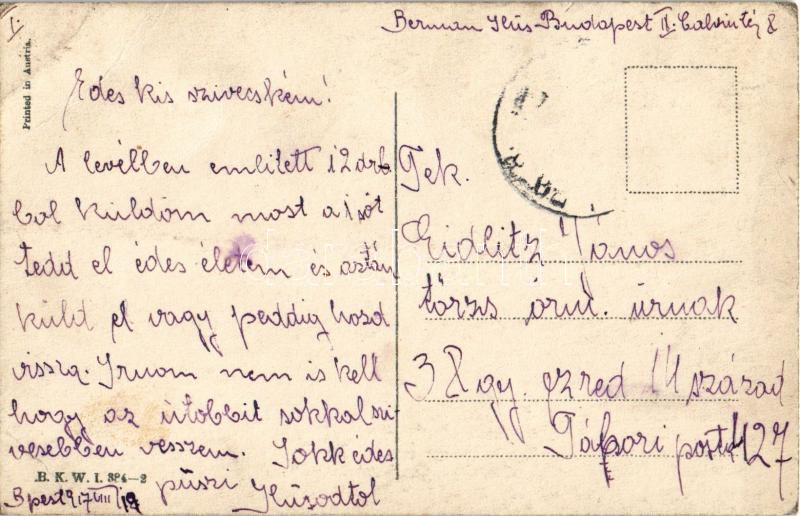 I.
Berman Ilus Budapest II. Calvin tér 8
Printed in Austria.
Édes kis szivecském!
A levélben emlitett 12 drb
ból küldöm most a 1 sőt
tedd el édes életem és aztán
küld el vagy peddig hozd
vissza. Irnom nem is kell
hogy az utobbit sokkal szi-
vesebben veszem. Sok édes
püszi Ilusodtol
B.K.W.I. 384-2
Bpest 917 VIII/19
Tek.
Eidlitz János
törzs orm. úrnak
38 gy. ezred 14 század
Tábori posta 427
darabanth